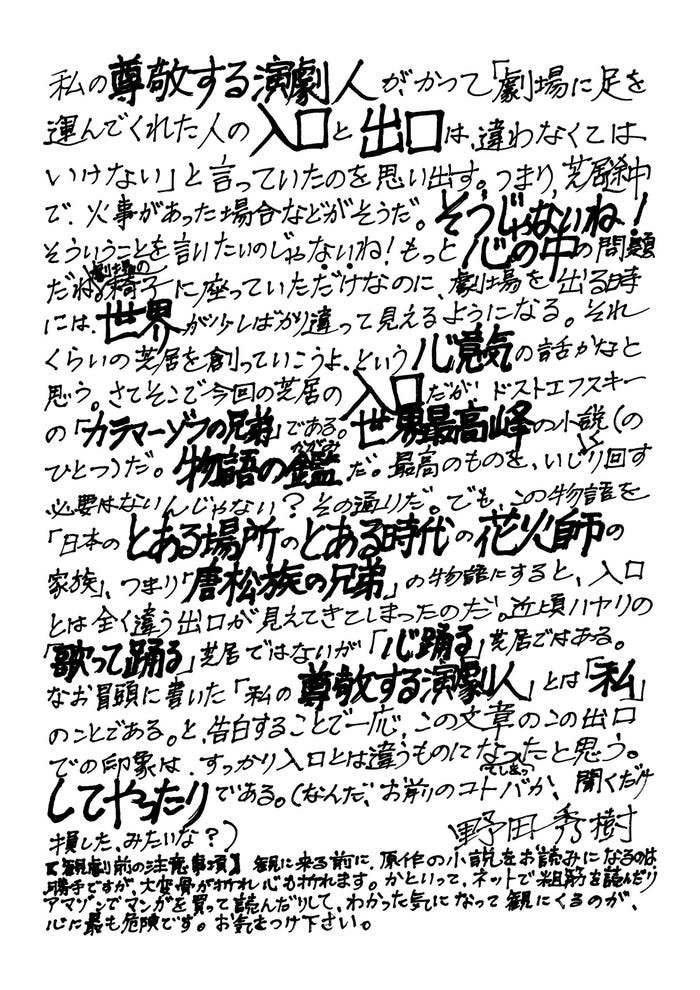 私の尊敬する演劇人が、かつて「劇場に足を
運んでくれた人の入口と出口は、違わなくては
いけない」と言っていたのを思い出す。つまり、芝居途中
で、火事があった場合などがそうだ。そうじゃないね!
そういうことを言いたいのじゃないね!もっと心の中の問題
だね。劇場の椅子に座っていただけなのに、劇場を出る時
には、世界が少しばかり違って見えるようになる。それ
くらいの芝居を創っていこうよ、という心意気の話かなと
思う。さてそこで今回の芝居の入口だが、ドストエフスキー
の「カラマーゾフの兄弟」である。世界最高峰の小説(の
ひとつ)だ。物語の鑑だ。最高のものを、いじり回す
必要はないんじゃない?その通りだ。でも、この物語を
「日本のとある場所のとある時代の花火師の
家族」、つまり「唐松族の兄弟」の物語にすると、入口
とは全く違う出口が見えてきてしまったのだ。近頃ハヤリの
「歌って踊る」芝居ではないが「心踊る」芝居ではある。
なお冒頭に書いた「私の尊敬する演劇人」とは「私」
のことである。と、告白することで一応、この文章のこの出口
での印象は、すっかり入口とは違うものになってしまったと思う。
してやったりである。(なんだ、お前のコトバか、聞くだけ
損した、みたいな?)
野田秀樹
【観劇前の注意事項】観に来る前に、原作の小説をお読みになるのは、
勝手ですが、大変骨が折れ心も折れます。かといって、ネットで粗筋を読んだり
アマゾンでマンガを買って読んだりして、わかった気になって観にくるのが、
心に最も危険です。お気をつけ下さい。